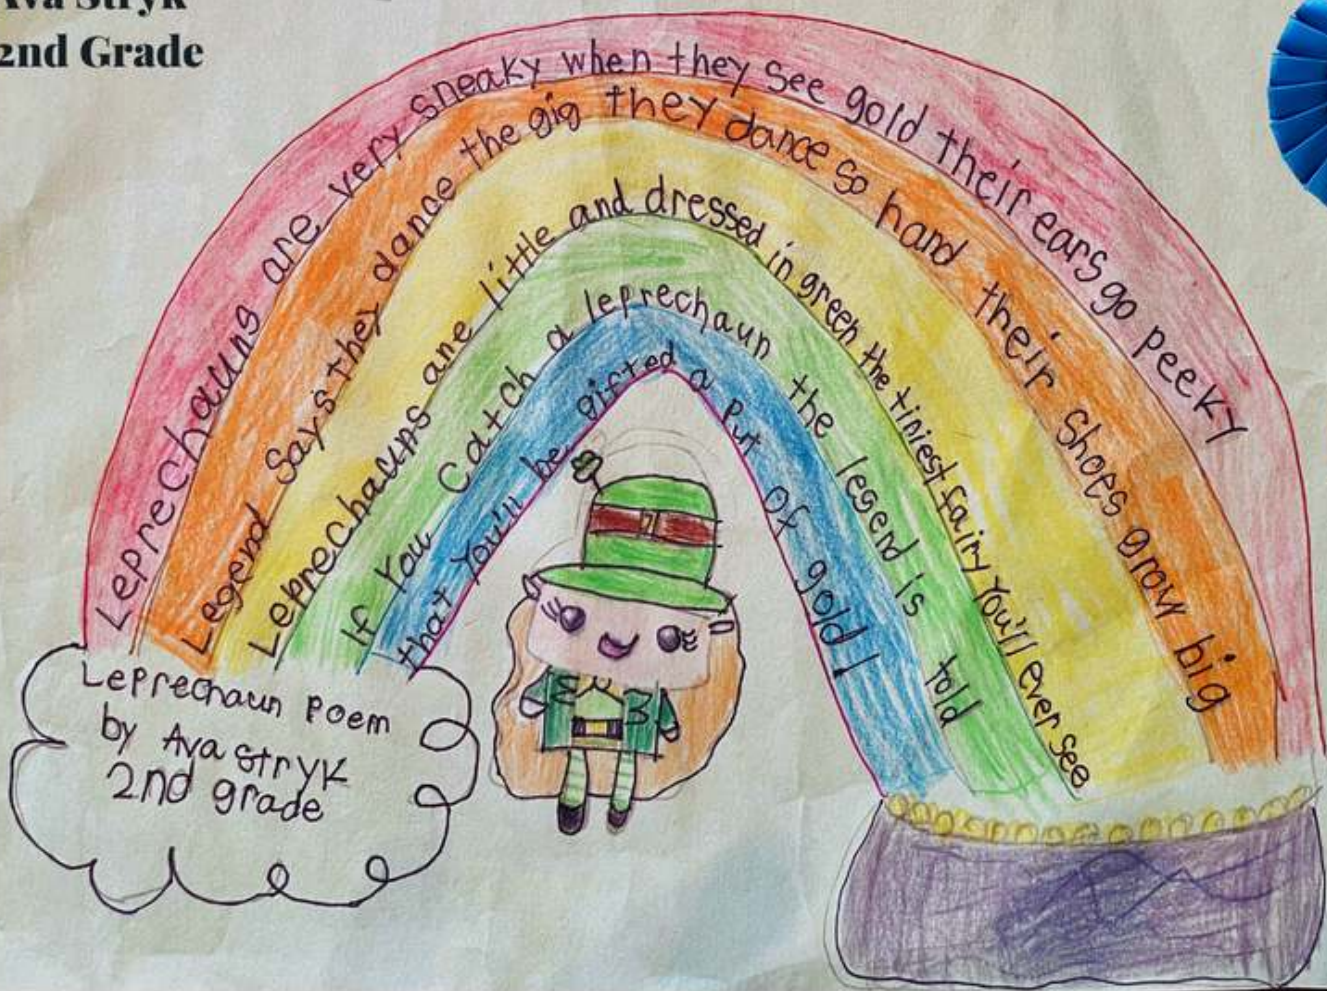 Ava Stryk
2nd Grade
Leprechauns are very sneaky when they see gold their ears go peeky
Legend says they dance the gig they dance so hard their shoes grow big
Leprechauns are little and dressed in green the tiniest fairy You'll ever see
If You Catch a leprechaun the legend is told
that You'll be gifted a Put Of gold!
Leprechaun Poem
by Ava Stryk
2nd grade